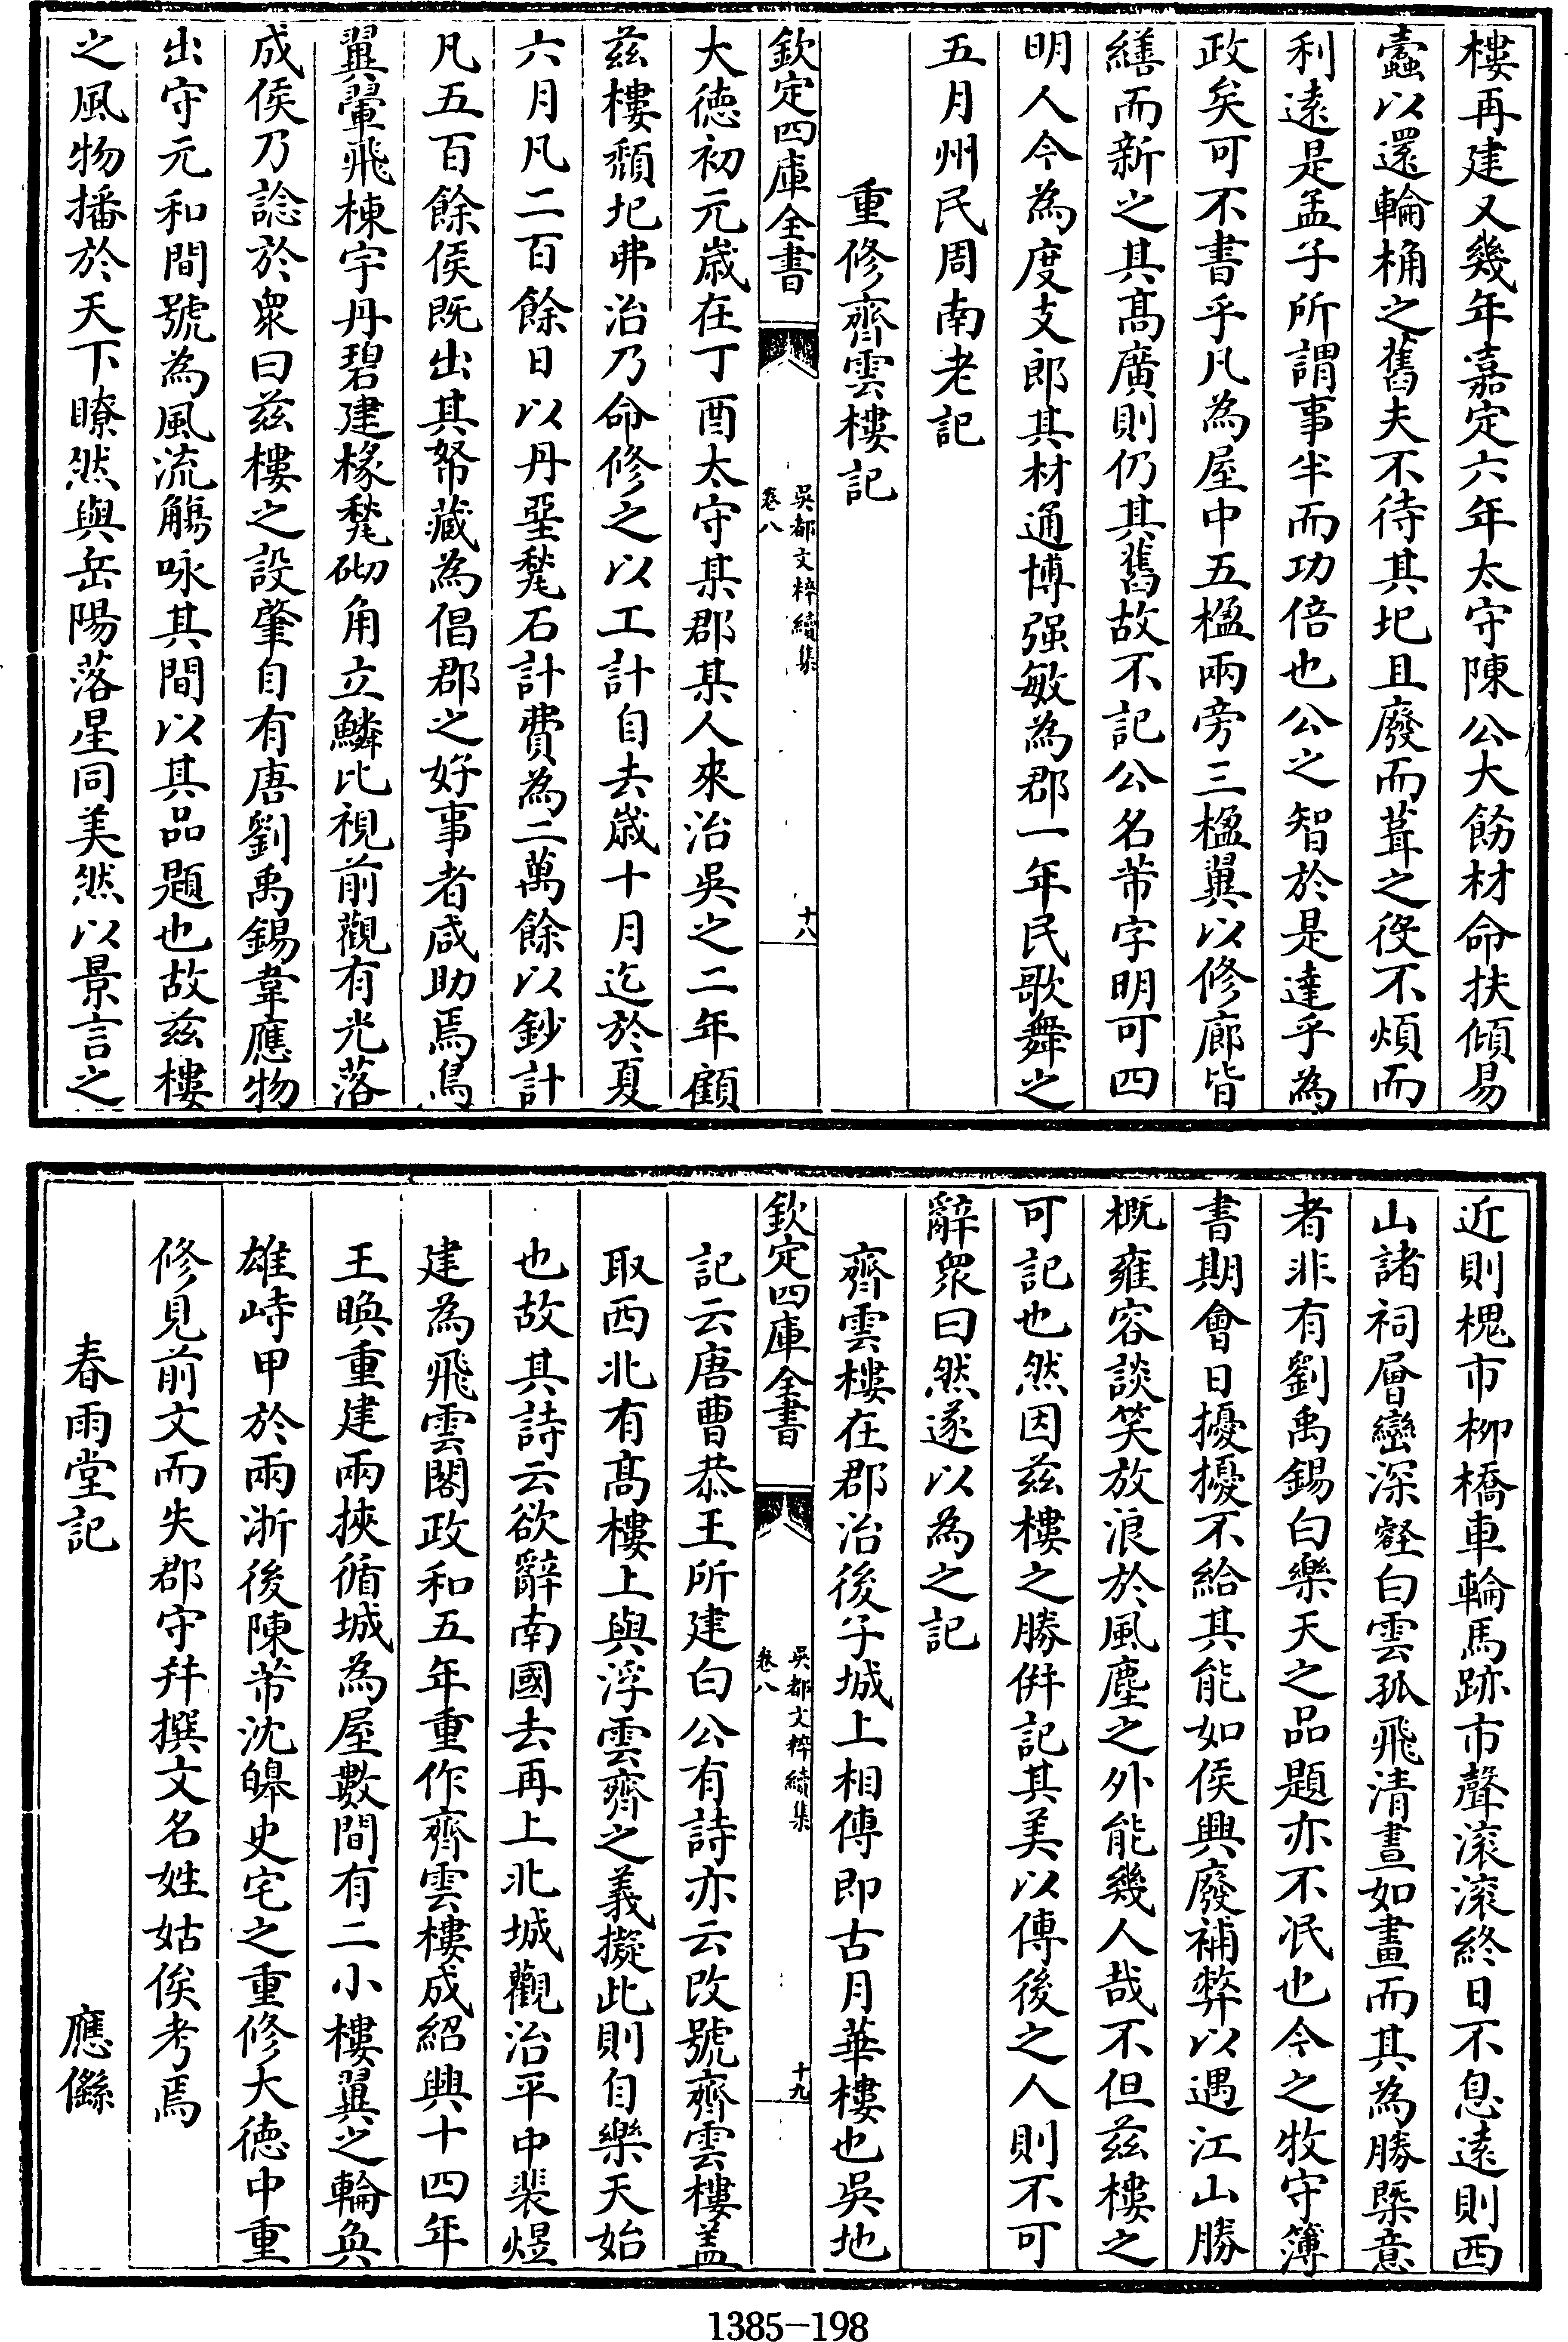 樓再建又幾年嘉定六年太守陳公大飭材命扶傾易
蠧以還輪桷之舊夫不待其圯且廢而葺之役不煩而
利逺是孟子所謂事半而功倍也公之智於是達乎為
政矣可不書乎凡為屋中五楹兩旁三楹翼以修廊皆
繕而新之其髙廣則仍其舊故不記公名芾字明可四
明人今為度支郎其材通博强敏為郡一年民歌舞之
五月州民周南老記
重修齊雲樓記
欽定四庫全書
吳都文粹續集
卷八
十八
大徳初元嵗在丁酉太守某郡某人來治吳之二年顧
兹樓頽圯弗治乃命修之以工計自去嵗十月迄於夏
六月凡二百餘日以丹堊甃石計費為二萬餘以鈔計
凡五百餘侯既出其帑藏為倡郡之好事者咸助焉鳥
翼翬飛棟宇丹碧建椽甃砌角立鱗比視前觀有光落
成侯乃諗於衆曰兹樓之設肇自有唐劉禹錫韋應物
出守元和間號為風流觴咏其間以其品題也故兹樓
之風物播於天下瞭然與岳陽落星同美然以景言之
近則槐市柳橋車輪馬跡市聲滚滚終日不息逺則西
山諸祠層巒深壑白雲孤飛清晝如畫而其為勝槩意
者非有劉禹錫白樂天之品題亦不泯也今之牧守簿
書期會日擾擾不給其能如侯興廢補弊以遇江山勝
概雍容談笑放浪於風塵之外能幾人哉不但兹樓之
可記也然因兹樓之勝併記其美以傳後之人則不可
辭衆曰然遂以為之記
齊雲樓在郡治後子城上相傳即古月華樓也吳地
欽定四庫全書
吳都文粹續集
卷八
十九
記云唐曹恭王所建白公有詩亦云改號齊雲樓盖
取西北有髙樓上與浮雲齊之義擬此則自樂天始
也故其詩云欲辭南國去再上北城觀治平中裴煜
建為飛雲閣政和五年重作齊雲樓成紹興十四年
王㬇重建兩挾循城為屋數間有二小樓翼之輪奐
雄峙甲於兩浙後陳芾沈皞史宅之重修大徳中重
修見前文而失郡守并撰文名姓姑俟考焉
春雨堂記
應繇
1385-198